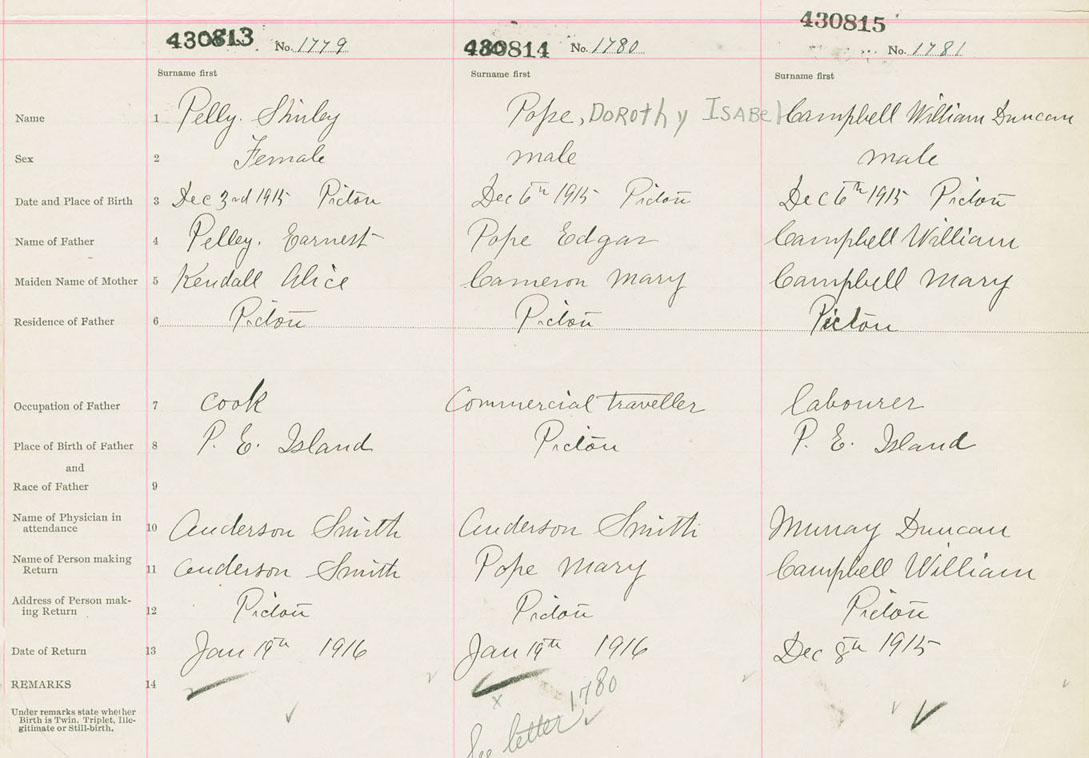 430813 No. 1779 430814 No. 1780 430815 No. 1781
Surname first Surname first Surname first
Name 1 Pelly. Shirley Pope, DOROTHY ISABEL Campbell William Duncan
Sex 2 Female male male
Date and Place of Birth 3 Dec 3rd 1915 Pictou Dec 6th 1915 Pictou Dec 6th 1915 Pictou
Name of Father 4 Pelley. Earnest Pope Edgar Campbell William
Maiden Name of Mother 5 Kendall Alice Cameron Mary Campbell Mary
Residence of Father 6 Pictou Pictou Pictou
Occupation of Father 7 cook Commercial traveller labourer
Place of Birth of Father 8 P. E. Island Pictou P. E. Island
and
Race of Father 9
Name of Physician in
attendance 10 Anderson Smith Anderson Smith Murray Duncan
Name of Person making
Return 11 Anderson Smith Pope Mary Campbell William
Address of Person mak-
ing Return 12 Pictou Pictou Pictou
Date of Return 13 Jan 19th 1916 Jan 19th 1916 Dec 8th 1915
REMARKS 14
Under remarks state whether
Birth is Twin, Triplet, Ille-
gitimate or Still-birth.
See letter 1780